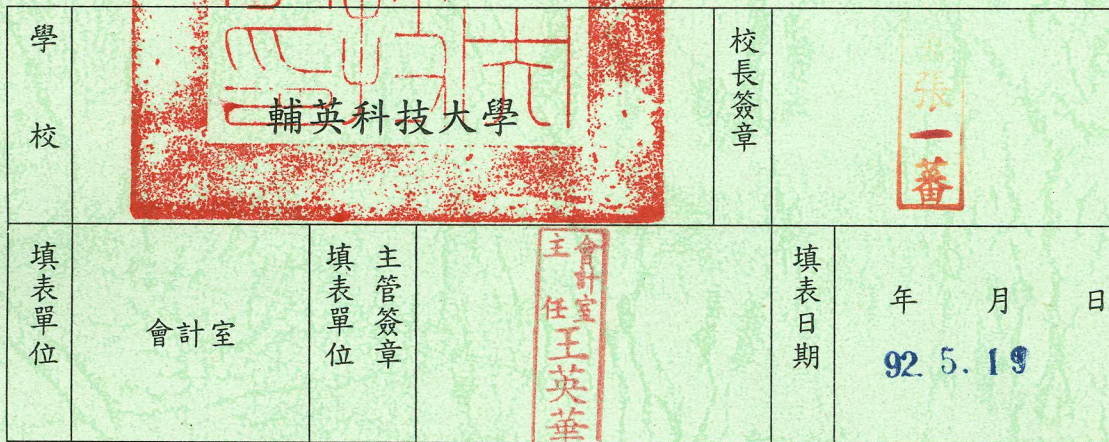 學校
輔英科技大學
校長簽章
張一蕃
填表單位
會計室
填表單位
主管簽章
會計室
主任
王英華
填表日期
年 月 日
92. 5. 19